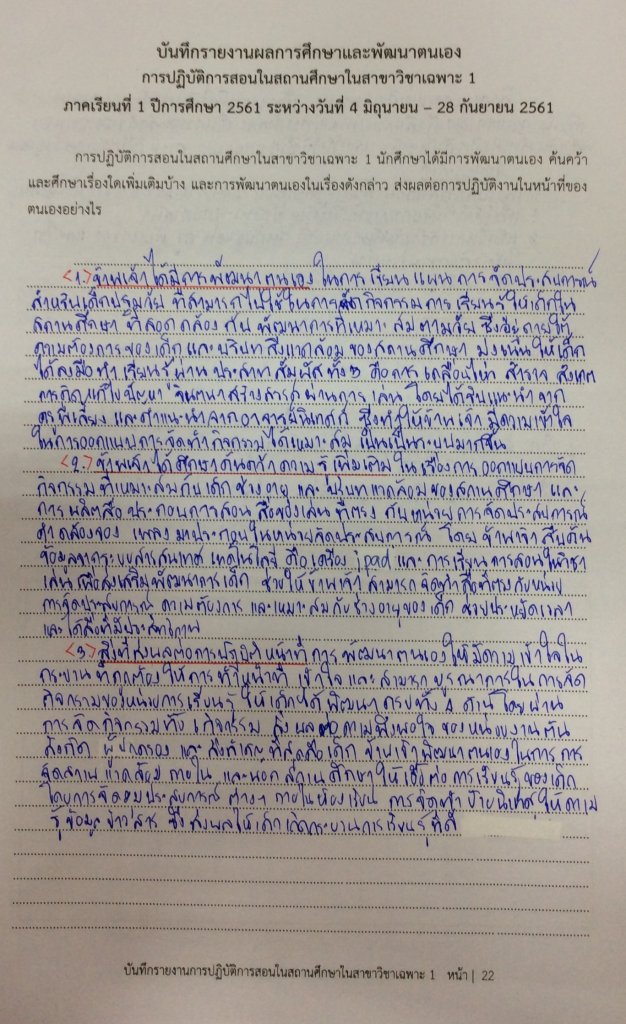 บันทึกรายงานผลการศึกษาและพัฒนาตนเอง
การปฏิบัติการสอนในสถานศึกษาในสาขาวิชาเฉพาะ 1
ภาคเรียนที่ 1 ปีการศึกษา 2561 ระหว่างวันที่ 4 มิถุนายน – 28 กันยายน 2561
การปฏิบัติการสอนในสถานศึกษาในสาขาวิชาเฉพาะ 1 นักศึกษาได้มีการพัฒนาตนเอง ค้นคว้า
และศึกษาเรื่องใดเพิ่มเติมบ้าง และการพัฒนาตนเองในเรื่องดังกล่าว ส่งผลต่อการปฏิบัติงานในหน้าที่ของ
ตนเองอย่างไร
<1.> ข้าพเจ้าได้มีการพัฒนาตนเอง ในการเขียนแผนการจัดประสบการณ์
สำหรับเด็กปฐมวัย ที่สามารถไปใช้ในการจัดกิจกรรมการเรียนรู้ให้เด็กใน
สถานศึกษา ที่สอดคล้องกับพัฒนาการที่เหมาะสมตามวัย ซึ่งอยู่ภายใต้
ความต้องการของเด็ก และบริบทสิ่งแวดล้อมของสถานศึกษา มุ่งเน้นให้เด็ก
ได้ลงมือทำ เรียนรู้ผ่านประสาทสัมผัสทั้ง 5 คือการเคลื่อนไหว สำรวจ สังเกต
การคิดแก้ไขปัญหา จินตนาสร้างสรรค์ ผ่านการเล่น โดยได้รับแนะนำจาก
ครูพี่เลี้ยง และคำแนะนำจากอาจารย์นิเทศก์ ซึ่งทำให้ข้าพเจ้า มีความเข้าใจ
ในการออกแบบการจัดทำกิจกรรมได้เหมาะสม เป็นระบบมากขึ้น
<2.> ข้าพเจ้าได้ศึกษาค้นคว้าความรู้เพิ่มเติม ในเรื่องการออกแบบการจัด
กิจกรรมที่เหมาะสมกับเด็กช่วงอายุ และบริบทแวดล้อมของสถานศึกษา และ
การผลิตสื่อประกอบการสอน สื่อของเล่นที่ตรงกับหน่วยการจัดประสบการณ์
คำคล้องจอง เพลง มาประกอบในหน่วยจัดประสบการณ์ โดยข้าพเจ้าสืบค้น
ข้อมูลจากระบบสารสนเทศ เทคโนโลยี คือเครื่อง ipad และการเรียนการสอนในวิชา
เล่นเพื่อส่งเสริมพัฒนาการเด็ก ช่วยให้ข้าพเจ้า สามารถจัดทำสื่อที่ตรงกับหน่วย
การจัดประสบการณ์ ความต้องการ และเหมาะสมกับช่วงอายุของเด็ก ช่วยประหยัดเวลา
และได้สื่อที่มีประสิทธิภาพ
<3> สิ่งที่ส่งผลต่อการปฏิบัติหน้าที่ การพัฒนาตนเองให้มีความเข้าใจใน
กระบวนที่ถูกต้อง ให้การทำหน้าที่ เข้าใจ และสามารถบูรณาการในการจัด
กิจกรรมของหน่วยการเรียนรู้ ให้เด็กได้พัฒนาครบทั้ง 4 ด้าน โดยผ่าน
การจัดกิจกรรมทั้ง กิจกรรม ส่งผลต่อความพึงพอใจ ของหน่วยงานต้น
สังกัด ผู้ปกครอง และสิ่งสำคัญที่สุดคือเด็ก ข้าพเจ้าพัฒนาตนเองในการ การ
จัดสภาพแวดล้อม ภายใน และนอกสถานศึกษาให้เอื้อต่อการเรียนรู้ของเด็ก
โดยการจัดมุมประสบการณ์ ต่างๆ ภายในห้องเรียน การจัดทำป้ายนิเทศให้ความ
รู้ ข้อมูล ข่าวสาร ซึ่งส่งผลให้เด็กเกิดกระบวนการเรียนรู้ที่ดี
บันทึกรายงานการปฏิบัติการสอนในสถานศึกษาในสาขาวิชาเฉพาะ 1 หน้า | 22